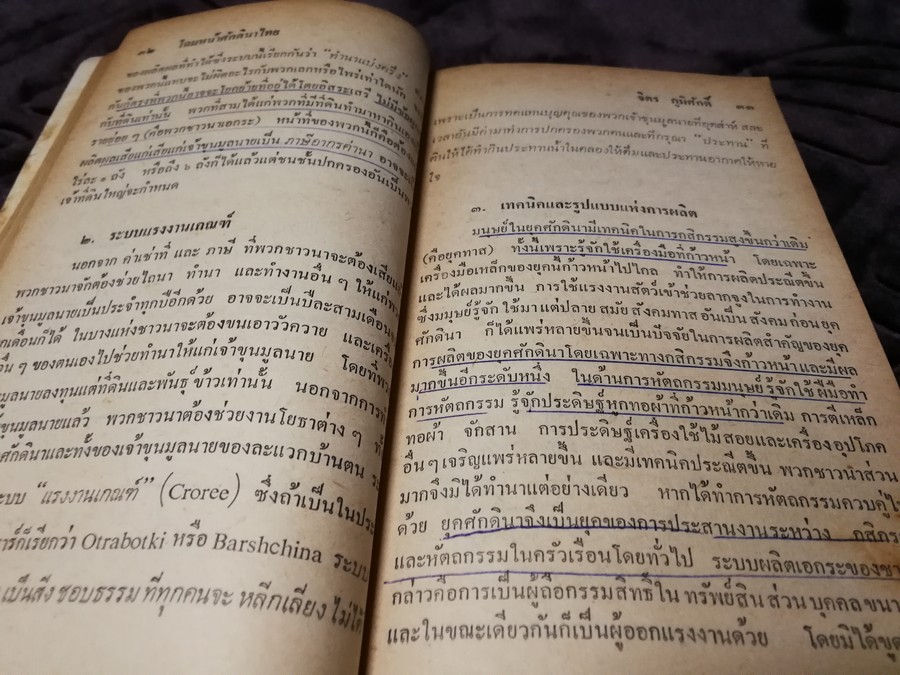 ๓๒ โฉมหน้าศักดินาไทย
ของผลิตผลที่ทำได้ซึ่งระบบนี้เรียกกันว่า “ทำนาแบ่งครึ่ง”
ของพวกนี้แทบจะไม่ผิดอะไรกับพวกเลกหรือไพร่เท่าใดนัก
กันก็ตรงที่พวกนี้อาจจะโยกย้ายที่อยู่ได้โดยอิสระเสรี ไม่มีข้อ
กับที่ดินเท่านั้น พวกที่สามได้แก่พวกที่มีที่ดินทำมาหากิน
รายย่อย ๆ (คือพวกชาวนาเอกระ) หน้าที่ของพวกนี้ก็คือต้อง
ผลิตผลเสียแก่เสียแก่เจ้าขุนมูลนายเป็น ภาษีอากรค่านา อาจจะ
ไร่ละ ๑ ถัง หรือถึง ๖ ถังก็ได้แล้วแต่ชนชั้นปกครองอันเป็น
เจ้าที่ดินใหญ่จะกำหนด
๒. ระบบแรงงานเกณฑ์
นอกจาก ค่าเช่าที่ และ ภาษี ที่พวกชาวนาจะต้องเสีย
พวกชาวนาจักต้องช่วยไถนา ทำนา และทำงานอื่น ๆ ให้แก่พวก
เจ้าขุนมูลนายเป็นประจำทุกปีอีกด้วย อาจจะเป็นปีละสามเดือน
กเดือนก็ได้ ในบางแห่งชาวนาจะต้องขนเอาวัวควาย และเครื่อง
อื่น ๆ ของตนเองไปช่วยทำนาให้แก่เจ้าขุนมูลนาย โดยที่พวก
มูลนายลงทุนแต่ที่ดินและพันธุ์ข้าวเท่านั้น นอกจากการ
ขุนมูลนายแล้ว พวกชาวนาต้องช่วยงานโยธาต่าง ๆ ทั้
ศักดินาและทั้งของเจ้าขุนมูลนายของละแวกบ้านตน
ะบบ “แรงงานเกณฑ์” (Croreé) ซึ่งถ้าเป็นในประ
าร์ก็เรียกว่า Otrabotki หรือ Barshchina ระบบ
เป็นสิ่งชอบธรรมที่ทุกคนจะ หลีกเลี่ยงไม่ได้
จิตร ภูมิศักดิ์ ๓๓
เพราะเป็นการทดแทนบุญคุณของพวกเจ้าขุนมูลนายที่อุตส่าห์ สละ
เวลาอันมีค่ามาทำการปกครองพวกตนและที่กรุณา “ประทาน” ที่
ดินให้ได้ทำกินประทานน้ำในคลองให้ดื่มและประทานอากาศให้หาย
ใจ
๓. เทคนิคและรูปแบบแห่งการผลิต
มนุษย์ในยุคศักดินามีเทคนิคในการกสิกรรมสูงขึ้นกว่าเดิม
(คือยุคทาส) ทั้งนี้เพราะรู้จักใช้เครื่องมือที่ก้าวหน้า โดยเฉพาะ
เครื่องมือเหล็กของยุคนี้ก้าวหน้าไปไกล ทำให้การผลิตประณีตขึ้น
และได้ผลมากขึ้น การใช้แรงงานสัตว์เข้าช่วยลากจูงในการทำงาน
ซึ่งมนุษย์รู้จัก ใช้มาแต่ปลาย สมัย สังคมทาส อันเป็น สังคม ก่อน ยุค
ศักดินา ก็ได้แพร่หลายขึ้นจนเป็นปัจจัยในการผลิตสำคัญของยุค
การผลิตของยุคศักดินาโดยเฉพาะทางกสิกรรมจึงก้าวหน้าและมีผล
มากขึ้นอีกระดับหนึ่ง ในด้านการหัตถกรรมมนุษย์รู้จักใช้ฝีมือทำ
การหัตถกรรม รู้จักประดิษฐ์หูกทอผ้าที่ก้าวหน้ากว่าเดิม การตีเหล็ก
ทอผ้า จักสาน การประดิษฐ์เครื่องใช้ไม้สอยและเครื่องอุปโภค
อื่นๆ เจริญแพร่หลายขึ้น และมีเทคนิคประณีตขึ้น พวกชาวนาส่วน
มากจึงมิได้ทำนาแต่อย่างเดียว หากได้ทำการหัตถกรรมควบคู่ไป
ด้วย ยุคศักดินาจึงเป็นยุคของการประสานงานระหว่าง กสิกร
และหัตถกรรมในครัวเรือนโดยทั่วไป ระบบผลิตเอกระของชา
กล่าวคือการเป็นผู้ถือกรรมสิทธิ์ใน ทรัพย์สิน ส่วน บุคคล ขนา
และในขณะเดียวกันก็เป็นผู้ออกแรงงานด้วย โดยมิได้ขูด